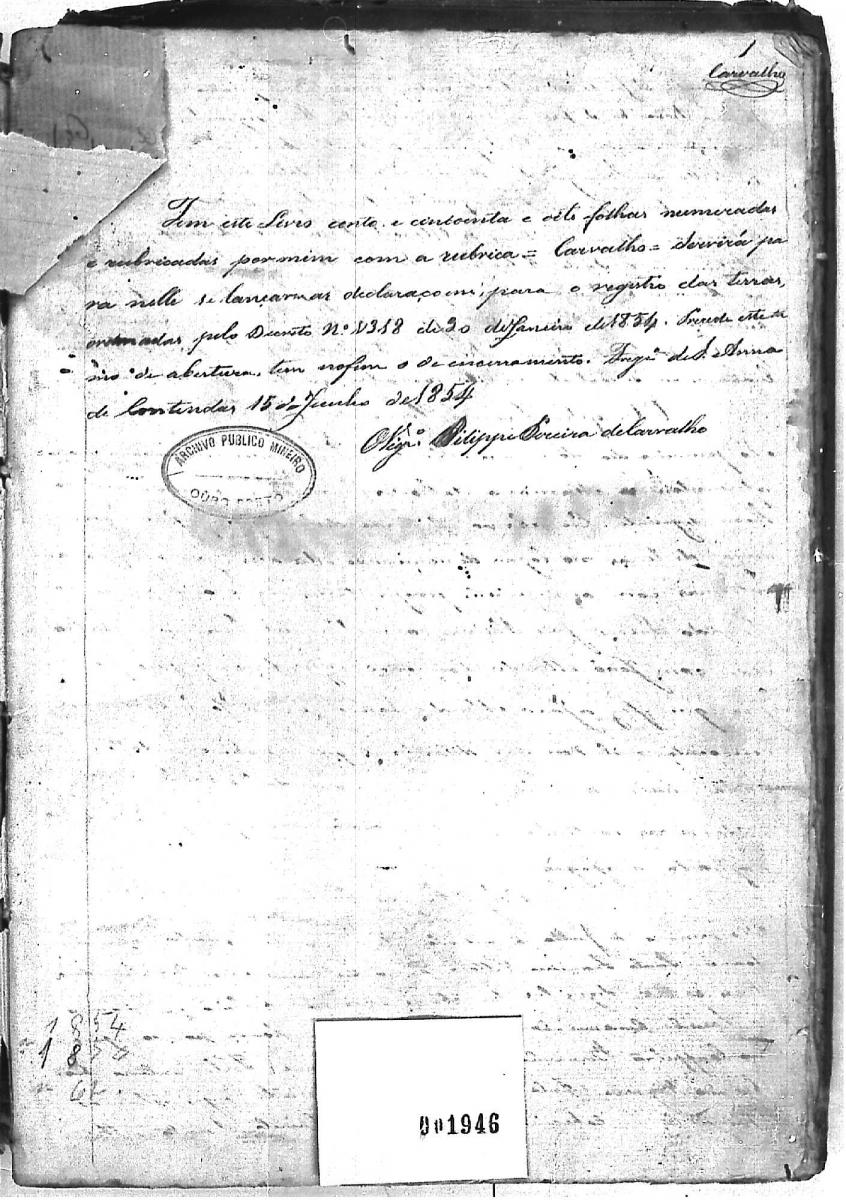 1
Carvalho
Tem este Livro cento e cincoenta e oito folhas numeradas
e rubricadas por mim com a rubrica = Carvalho = Servirá pa
ra nelle se lançar as declaraçoens, para o registro das terras,
ordenadas pelo Decreto Nº 1318 de 30 de Janeiro de 1854. Precede este ter
mo de abertura, tem no fim o de encerramento. Fregª de S. Anna
de Contendas 15 de Junho de 1854
O Vigrº Philippe Pereira de Carvalho
ARCHIVO PUBLICO MINEIRO
OURO PRETO
1854
62
001946